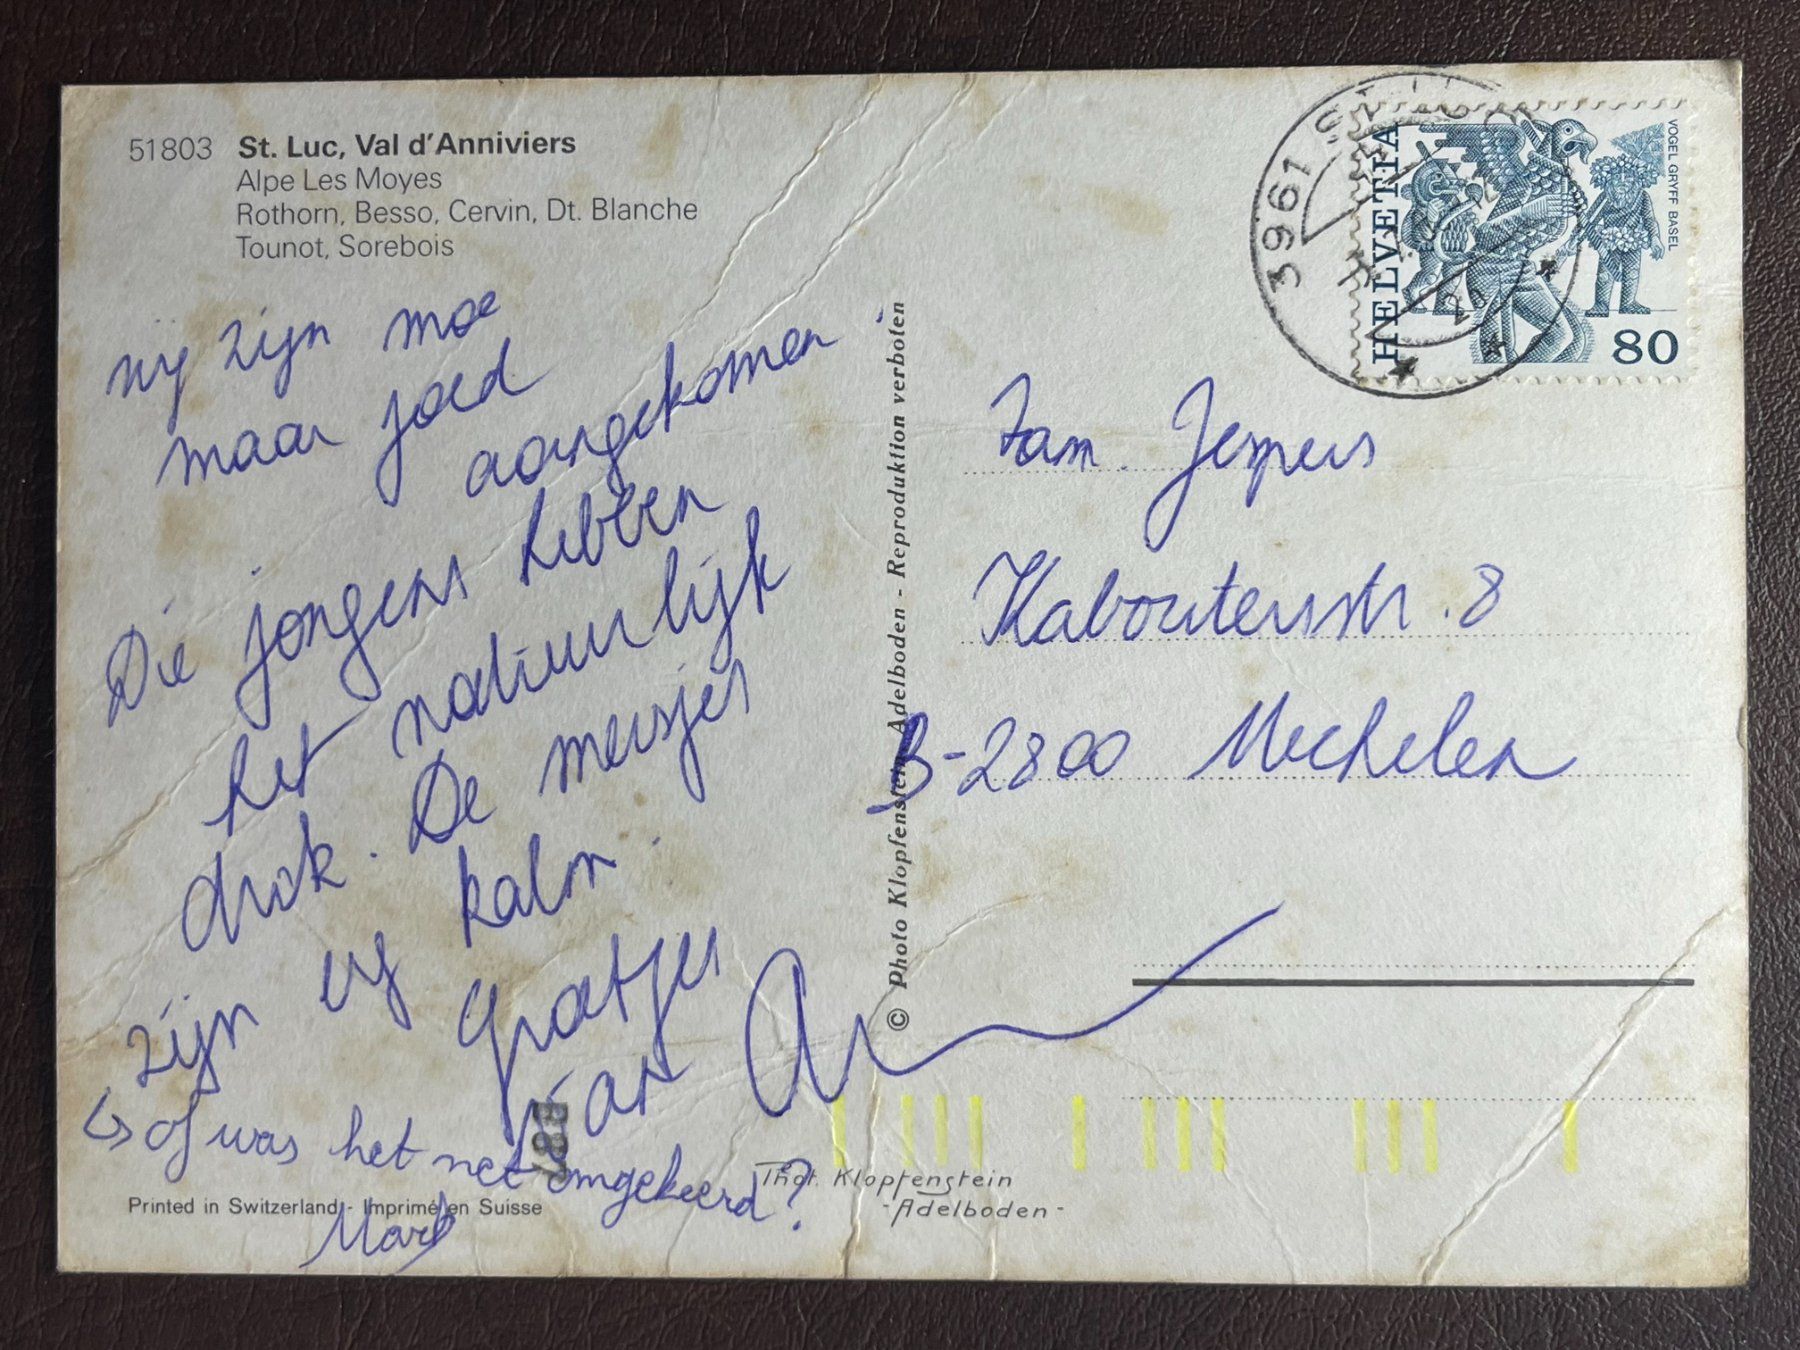 51803 St. Luc, Val d'Anniviers
Alpe Les Moyes
Rothorn, Besso, Cervin, Dt. Blanche
Tounot, Sorebois
wij zijn moe
maar goed
aangekomen.
Die jongens hebben
het natuurlijk
druk. De meisjes
zijn erg kalm.
Groetjes
van
↳ of was het net omgekeerd?
Mark
Printed in Switzerland - Imprimé en Suisse
© Photo Klopfenstein, Adelboden - Reproduktion verboten
HELVETIA
VOGEL GRYFF BASEL
80
3961 ST-LUC
Fam. Jespers
Kabouterstr. 8
B-2800 Mechelen
Phot. Klopfenstein
- Adelboden -